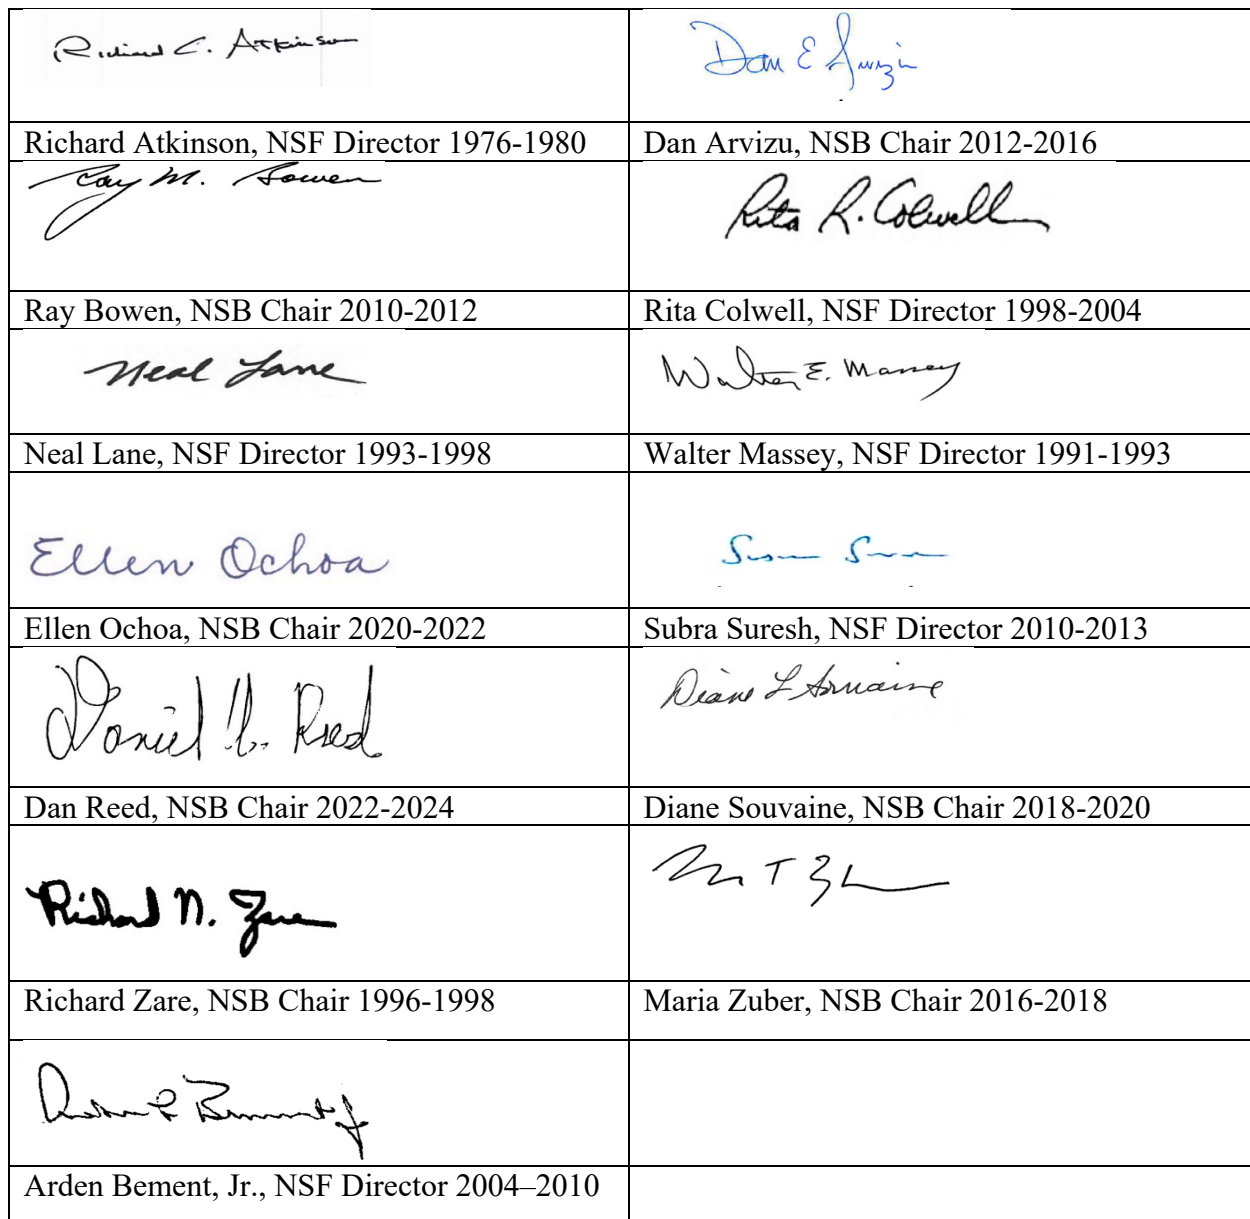 Richard C. Atkinson
Dan E Arvizu
Richard Atkinson, NSF Director 1976-1980
Dan Arvizu, NSB Chair 2012-2016
Ray M. Bowen
Rita R. Colwell
Ray Bowen, NSB Chair 2010-2012
Rita Colwell, NSF Director 1998-2004
Neal Lane
Walter E. Massey
Neal Lane, NSF Director 1993-1998
Walter Massey, NSF Director 1991-1993
Ellen Ochoa
Ellen Ochoa, NSB Chair 2020-2022
Subra Suresh, NSF Director 2010-2013
Daniel A. Reed
Diane L Souvaine
Dan Reed, NSB Chair 2022-2024
Diane Souvaine, NSB Chair 2018-2020
Richard N. Zare
Richard Zare, NSB Chair 1996-1998
Maria Zuber, NSB Chair 2016-2018
Arden Bement, Jr., NSF Director 2004–2010